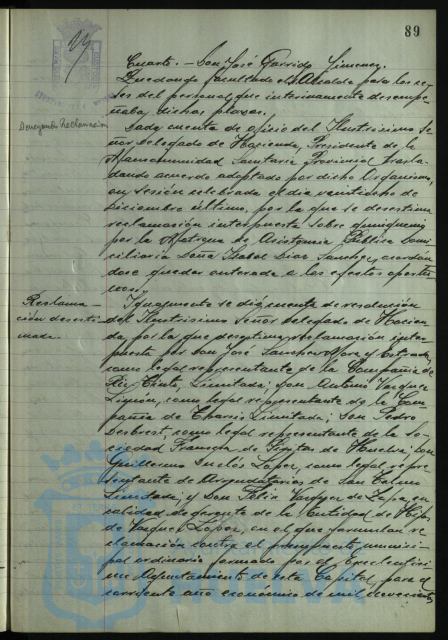 89
Cuarto.- Don José Garrido Jimenez.
Quedando facultado el Alcalde para los ce-
ses del personal que interinamente desempe-
ñaba dichas plazas.
Denegando Reclamación
Dada cuenta de oficio del Ilustrisimo Se-
ñor Delegado de Hacienda, Presidente de la
Mancomunidad Sanitaria Provincial trasla-
dando acuerdo adoptado por dicho Organismo,
en sesión celebrada el dia veintiocho de
Diciembre último, por la que se desestima
reclamación interpuesta sobre quinquenio
por la Matrona de Asistencia Publica Domi-
ciliaria Doña Isabel Diaz Sanchez, acordan-
dose quedar enterada a los efectos oportu-
nos.
Reclama-
ción desesti-
mada.
Igualmente se dió cuenta de resolución
del Ilustrisimo Señor Delegado de Hacien-
da por la que desestima reclamación inter-
puesta por Don José Sanchez Mora y
como legal representante de la Compañia de
Rio Tinto, Limitada; Don Antonio Vazquez
Limón, como legal representante de la Com-
pañia de Tharsis Limitada; Don Pedro
como legal representante de la So-
ciedad Francesa de Piritas de Huelva; Don
Guillermo López, como legal repre-
sentante de Arrendatarios de San Telmo
Limitada; y Don Felix Vazquez de en
calidad de gerente de la Entidad de Hijos
de Vazquez López, en el que formulan re-
clamación contra el presupuesto munici-
pal ordinario formado por el Excelentisi-
mo Ayuntamiento de esta Capital, para el
corriente año económico de mil novecientos